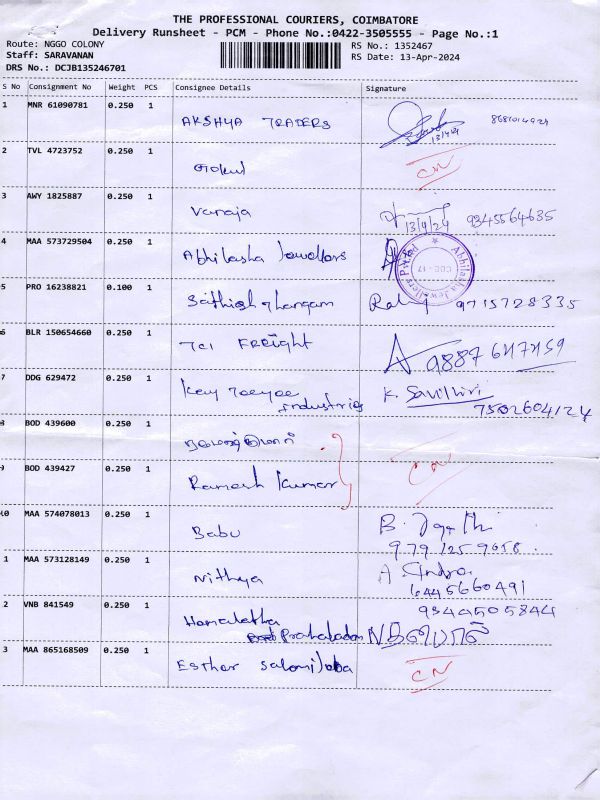 THE PROFESSIONAL COURIERS, COIMBATORE
Delivery Runsheet - PCM - Phone No.:0422-3505555 - Page No.:1
Route: NGGO COLONY
Staff: SARAVANAN
DRS No.: DCJB135246701
RS No.: 1352467
RS Date: 13-Apr-2024
S No Consignment No Weight PCS Consignee Details Signature
1 MNR 61090781 0.250 1 AKSHYA TRADERS 13/4/24
2 TVL 4723752 0.250 1 Gokul CN
3 AWY 1825887 0.250 1 Vanaja 13/4/24 9345564635
4 MAA 573729504 0.250 1 Abhilasha Jewellors
5 PRO 16238821 0.100 1 Sathish thangam 9715728335
6 BLR 150654660 0.250 1 TCI FREIGHT
7 DDG 629472 0.250 1 Key Teeyee industries K. Savithiri
7502604124
8 BOD 439600 0.250 1
9 BOD 439427 0.250 1 Ramesh Kumar CN
10 MAA 574078013 0.250 1 Babu
1 MAA 573128149 0.250 1 Nithya
2 VNB 841549 0.250 1 Hemalatha
Prahaladan
3 MAA 865168509 0.250 1 Esther CN